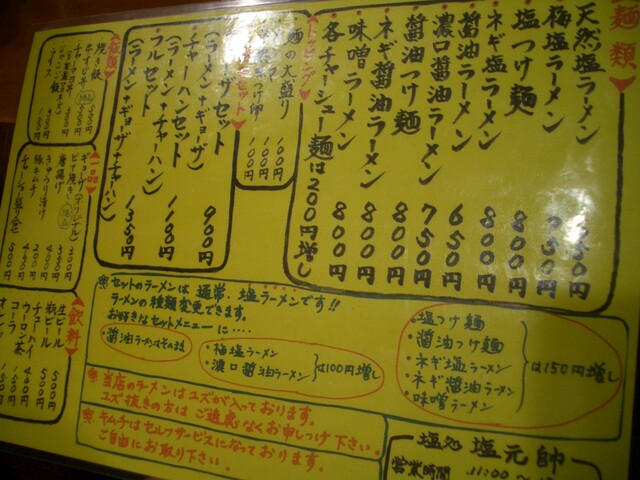 麺類
天然塩ラーメン 650円
梅塩ラーメン 750円
塩つけ麺 800円
ネギ塩ラーメン 800円
醤油ラーメン 650円
濃口醤油ラーメン 750円
醤油つけ麺 800円
ネギ醤油ラーメン 800円
味噌ラーメン 800円
各チャーシュー麺は200円増し
トッピング
麺の大盛り 100円
100円
100円
セット
ギョーザセット
(ラーメン+ギョーザ) 900円
チャーハンセット
(ラーメン+チャーハン) 1100円
フルセット
(ラーメン+ギョーザ+チャーハン) 1350円
飯類
焼き飯
ライス
一品
ギョーザ
唐揚げ
きゅうり漬け
豚キムチ
チャーシュー盛り合せ
飲料
生ビール 500
瓶ビール 500
チューハイ
ウーロン茶
コーラ
セットのラーメンは通常、塩ラーメンです!!
ラーメンの種類変更できます。
お好きなセットメニューに‥‥
醤油ラーメンはそのまま
・梅塩ラーメン
・濃口醤油ラーメン
は100円増し
・塩つけ麺
・醤油つけ麺
・ネギ塩ラーメン
・ネギ醤油ラーメン
・味噌ラーメン
は150円増し
当店のラーメンはユズが入っております。
ユズ抜きの方はご遠慮なくお申しつけ下さい。
キムチはセルフサービスになっております。
ご自由にお取り下さい。
塩処 塩元帥
営業時間 11:00~